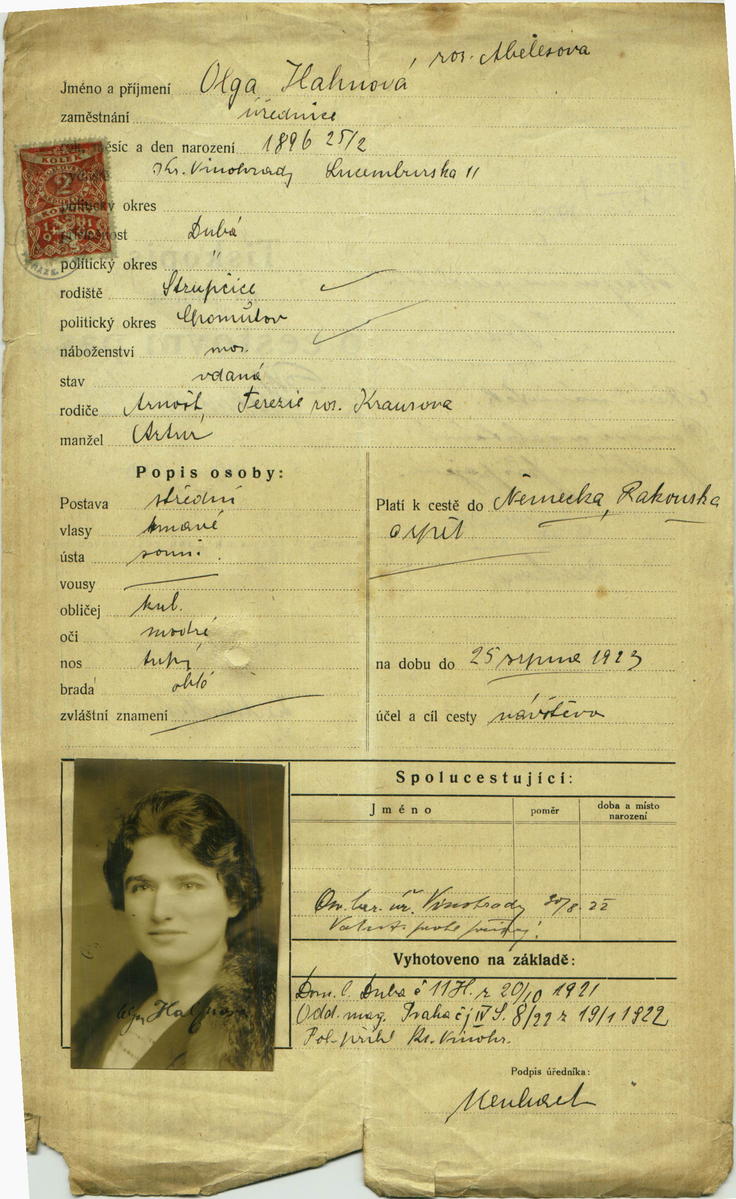 roz. Abelesova
Jméno a příjmení Olga Hahnová
zaměstnání úřednice
měsíc a den narození 1896 25/2
Kr. Vinohrady Lucemburska 11
KOLEK
2
politický okres
Dubá
politický okres "
rodiště Strupčice
politický okres Chomútov
náboženství mos.
stav vdaná
rodiče Arnošt, Terezie roz. Krausova
manžel Artur
Popis osoby:
Postava střední
vlasy tmavé
ústa
vousy
obličej kul.
oči modré
nos tupý
brada oblá
zvláštní znamení
Platí k cestě do Německa, Rakouska
a zpět
na dobu do 25 srpna 1923
účel a cíl cesty návštěva
Spolucestující:
Jméno poměr doba a místo narození
Vinohrady 30/8. 22
Vyhotoveno na základě:
Dom. l. Dubá č 11 H. z 20/10 1921
Odd. mag. Praha čj IV S. 8/22 z 19/1 1922
Pol. přihl Kr. Vinohr.
Podpis úředníka:
Olga Hahnova